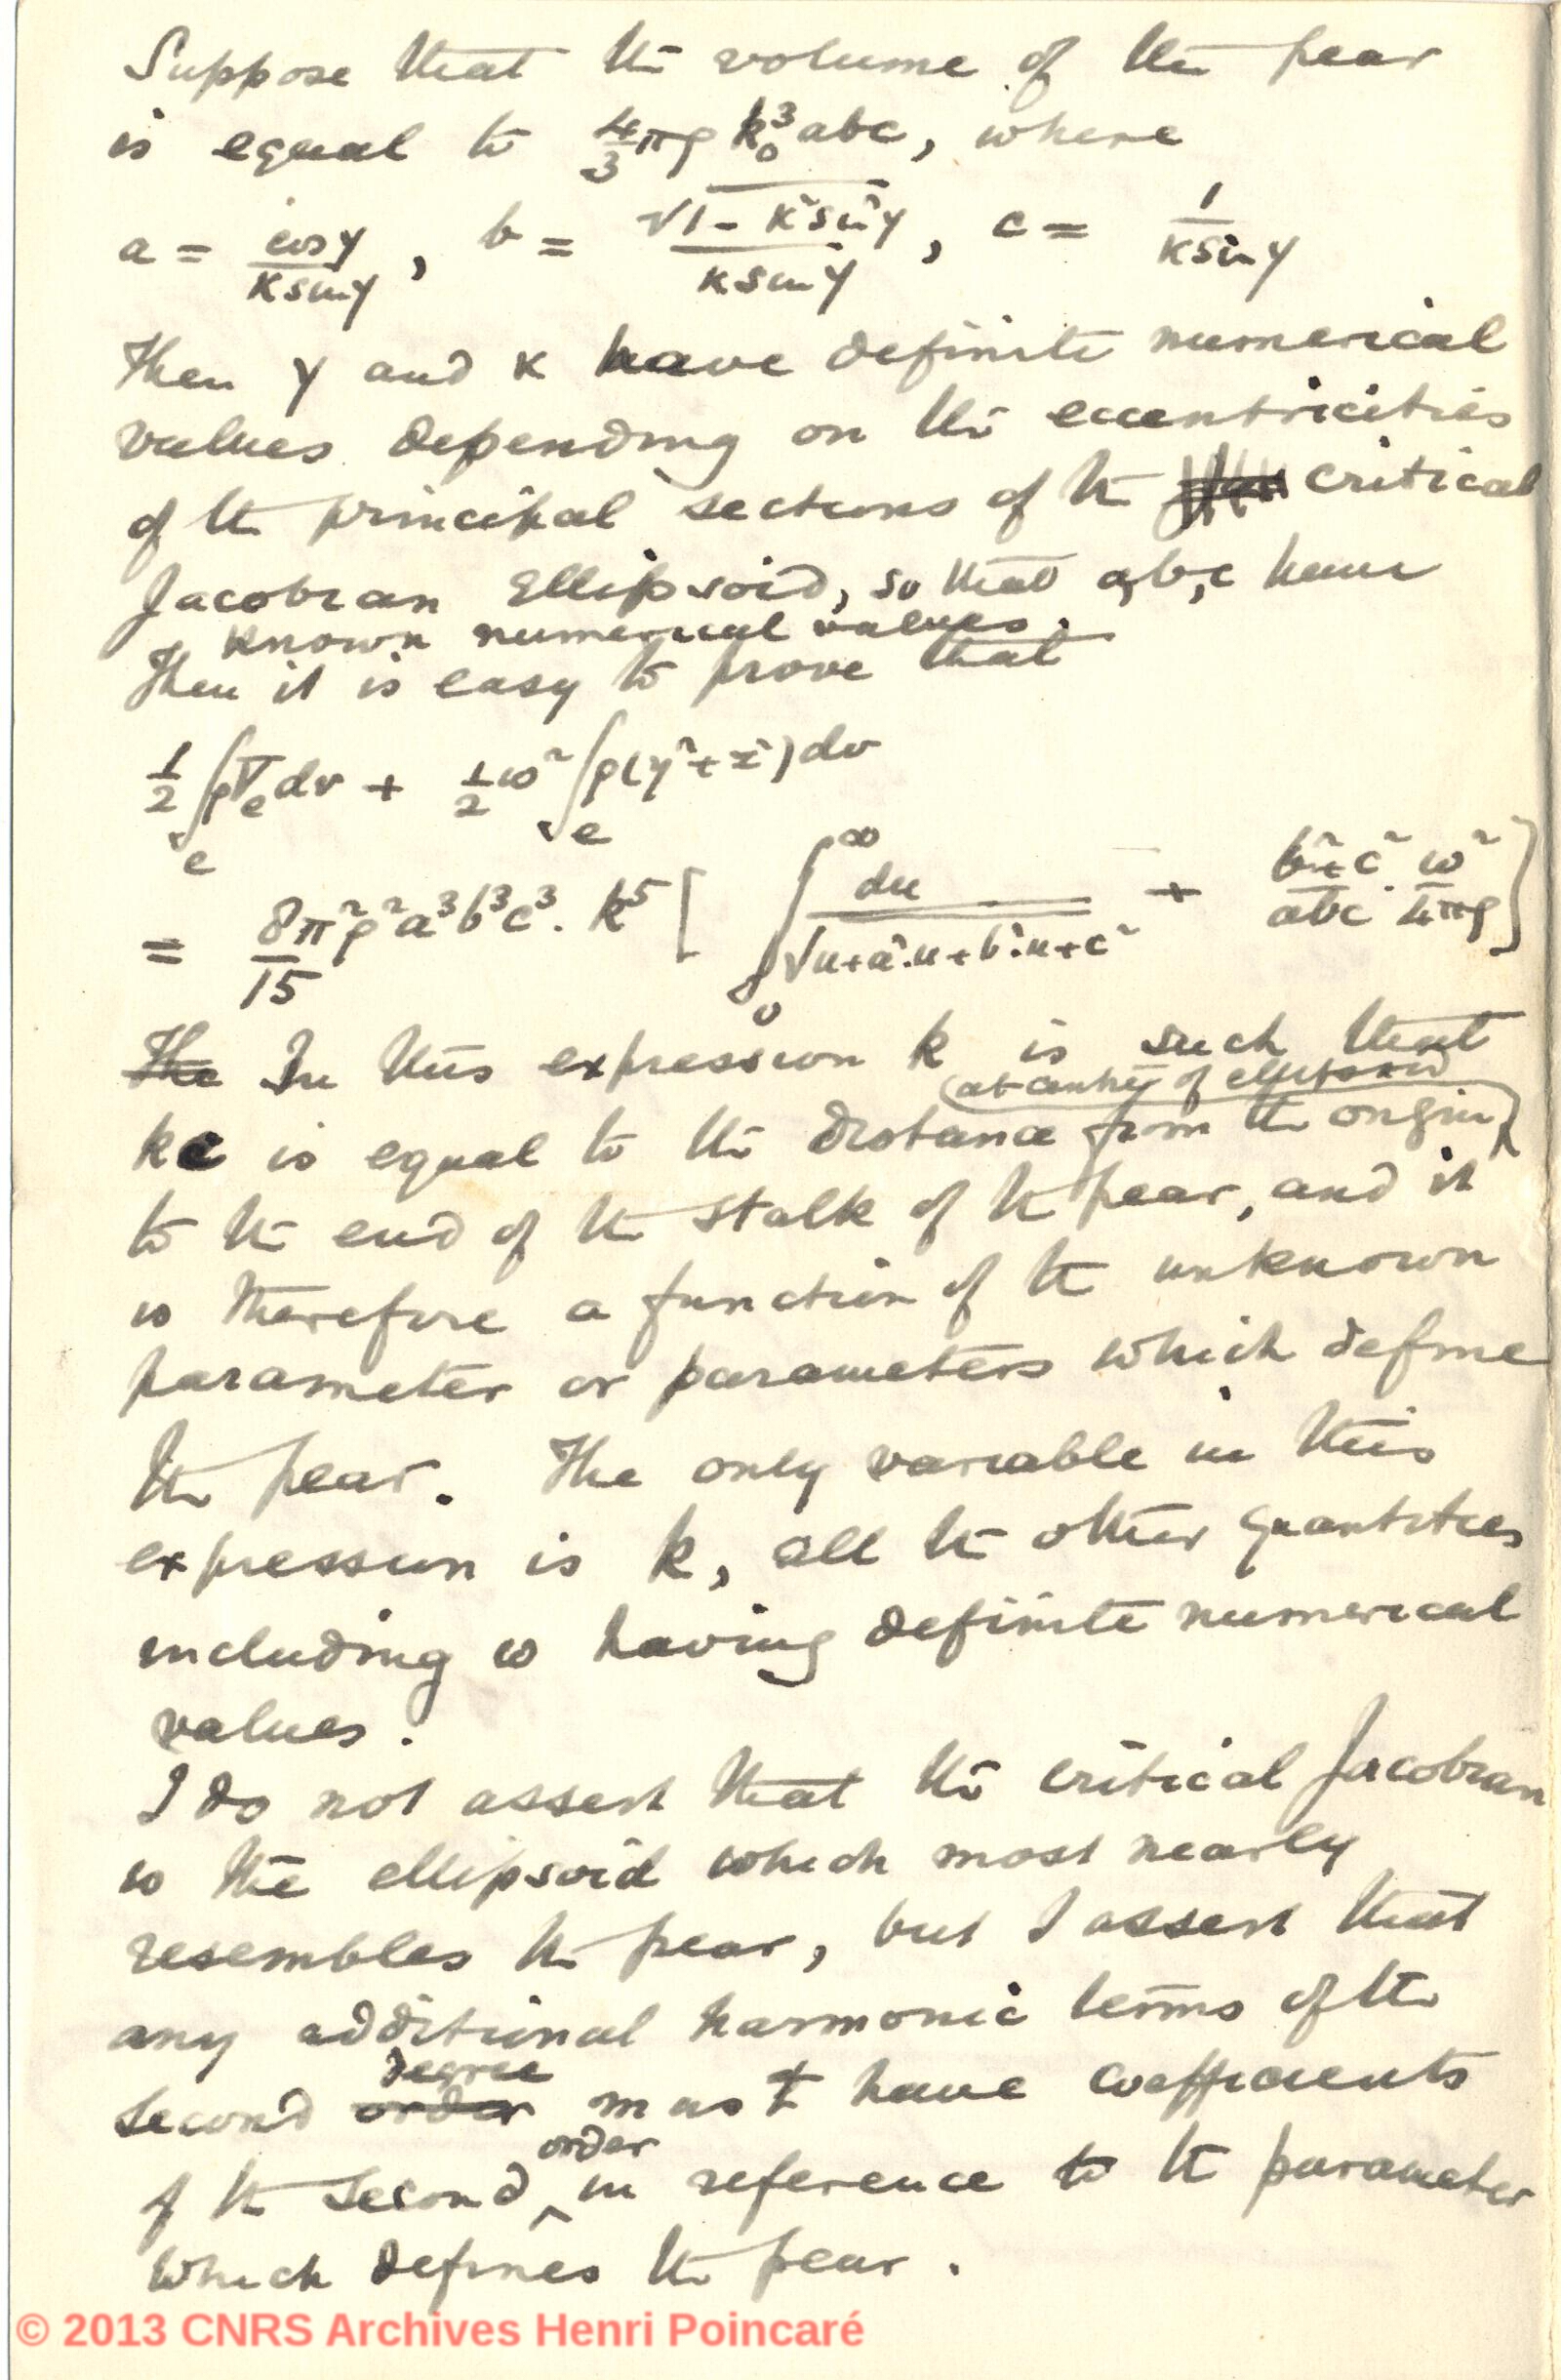 Suppose that the volume of the pear
is equal to 4/3 πρ k₀³ abc, where
a = cosγ / κ sinγ, b = √(1 - κ² sin²γ) / κ sinγ, c = 1 / κ sinγ
Then γ and κ have definite numerical
values depending on the eccentricities
of the principal sections of the critical
Jacobian Ellipsoid, so that a, b, c have
known numerical values.
Then it is easy to prove that
1/2 ∫ₑ ρVₑ dv + 1/2 ω² ∫ₑ ρ(y² + z²) dv
= 8π²ρ²a³b³c³ / 15 . k⁵ [ ∫₀^∞ du / √(u+a².u+b².u+c²) + b²+c² / abc . ω² / 4πρ ]
~~The~~ In this expression k is such that
(at centre of ellipsoid
kc is equal to the distance from the origin)
to the end of the stalk of the pear, and it
is therefore a function of the unknown
parameter or parameters which define
the pear. The only variable in this
expression is k, all the other quantities
including ω having definite numerical
values.
I do not assert that the critical Jacobian
is the ellipsoid which most nearly
resembles the pear, but I assert that
any additional harmonic terms of the
degree
second ~~order~~ must have coefficients
order
of the second ‸ in reference to the parameter
which defines the pear.
© 2013 CNRS Archives Henri Poincaré